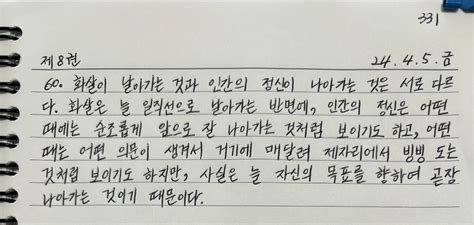 331
제8권 24. 4. 5. 금
60. 화살이 날아가는 것과 인간의 정신이 나아가는 것은 서로 다르
다. 화살은 늘 일직선으로 날아가는 반면에, 인간의 정신은 어떤
때에는 순조롭게 앞으로 잘 나아가는 것처럼 보이기도 하고, 어떤
때는 어떤 의문이 생겨서 거기에 매달려 제자리에서 빙빙 도는
것처럼 보이기도 하지만, 사실은 늘 자신의 목표를 향하여 곧장
나아가는 것이기 때문이다.